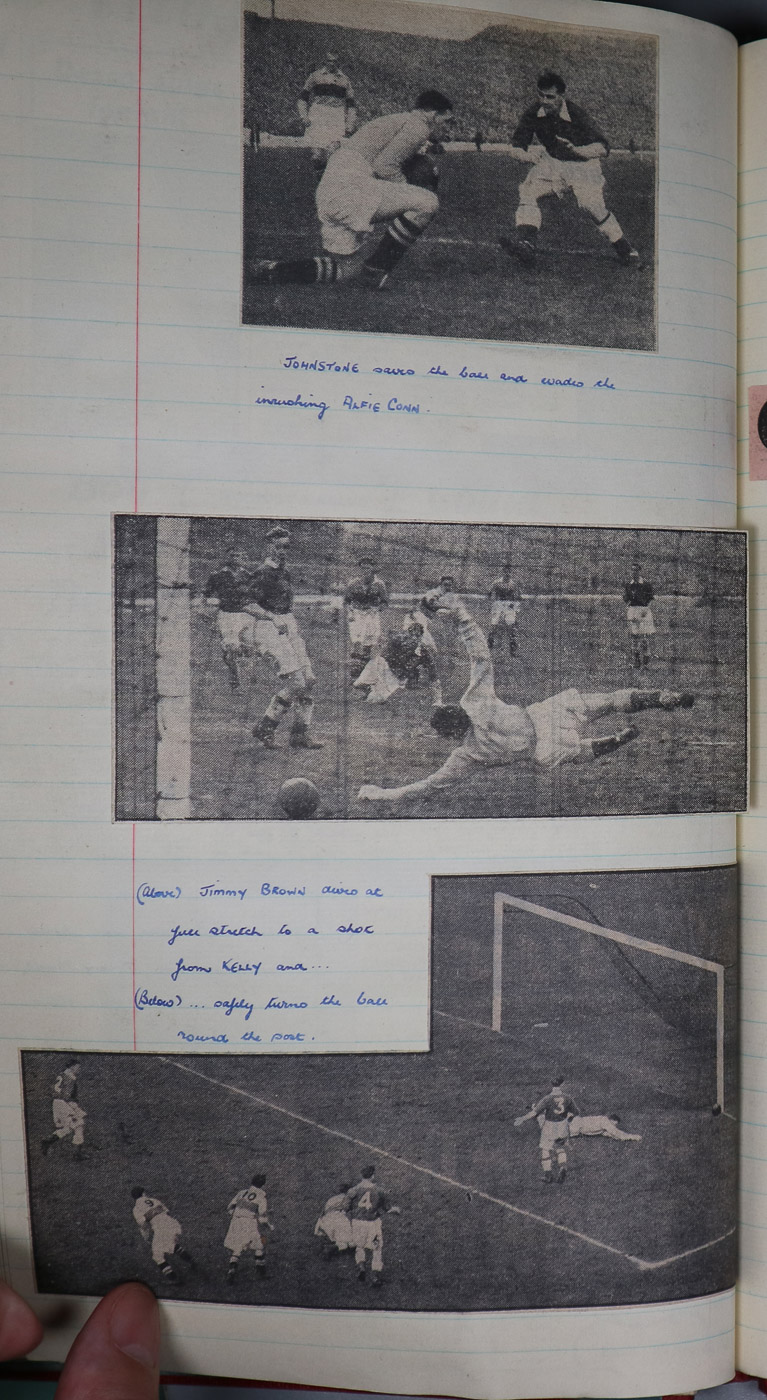 JOHNSTONE saves the ball and evades the
inrushing ALFIE CONN.
(Above) Jimmy BROWN dives at
full stretch to a shot
from KELLY and...
(Below) ... safely turns the ball
round the post.
2
3
9
10
4